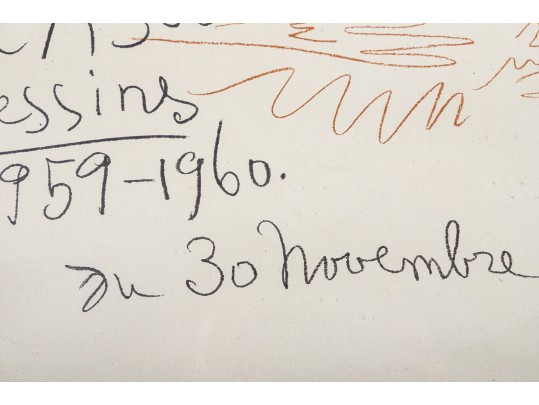 essins
959-1960.
Du 30 Novembre